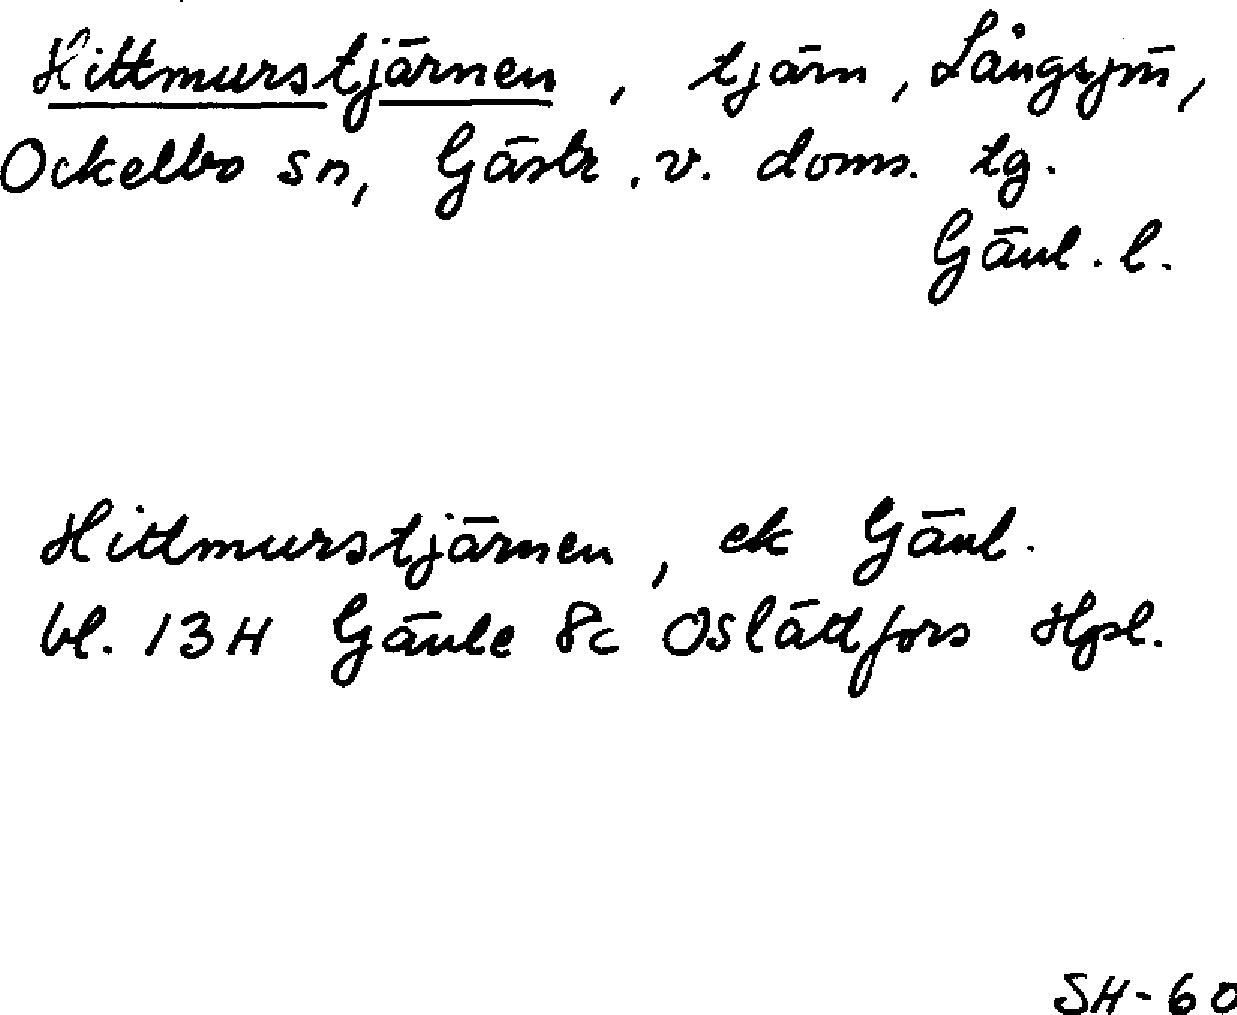 Hittmurstjärnen, tjärn, Långsjön,
Ockelbo sn, Gästr. v. doms. tg.
Gävl. l.
Hittmurstjärnen, ek Gävl.
bl. 13H Gävle 8c Oslättfors Hpl.
SH-60